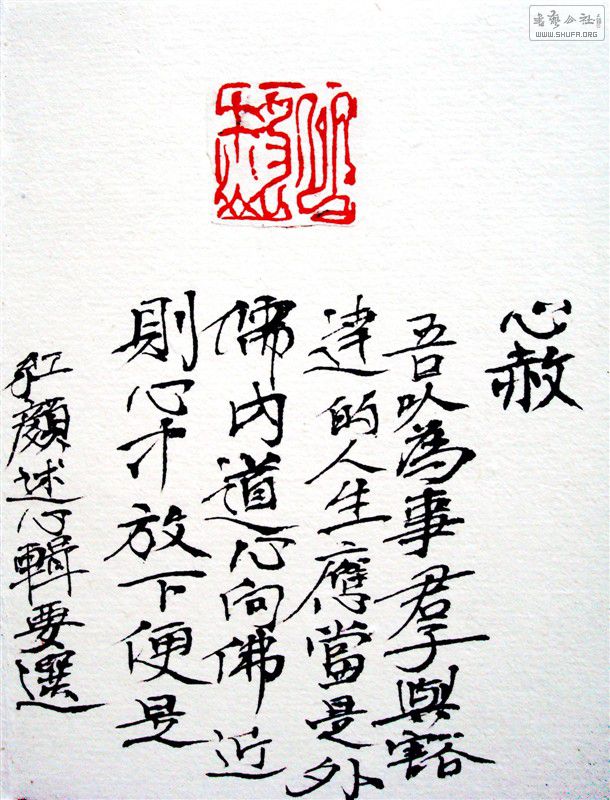 心赦
吾以為事君子與豁
達的人生應當是外
儒內道心向佛 近
則心才放下便是
紅顏述心輯要選
書藝公社
WWW.SHUFA.ORG